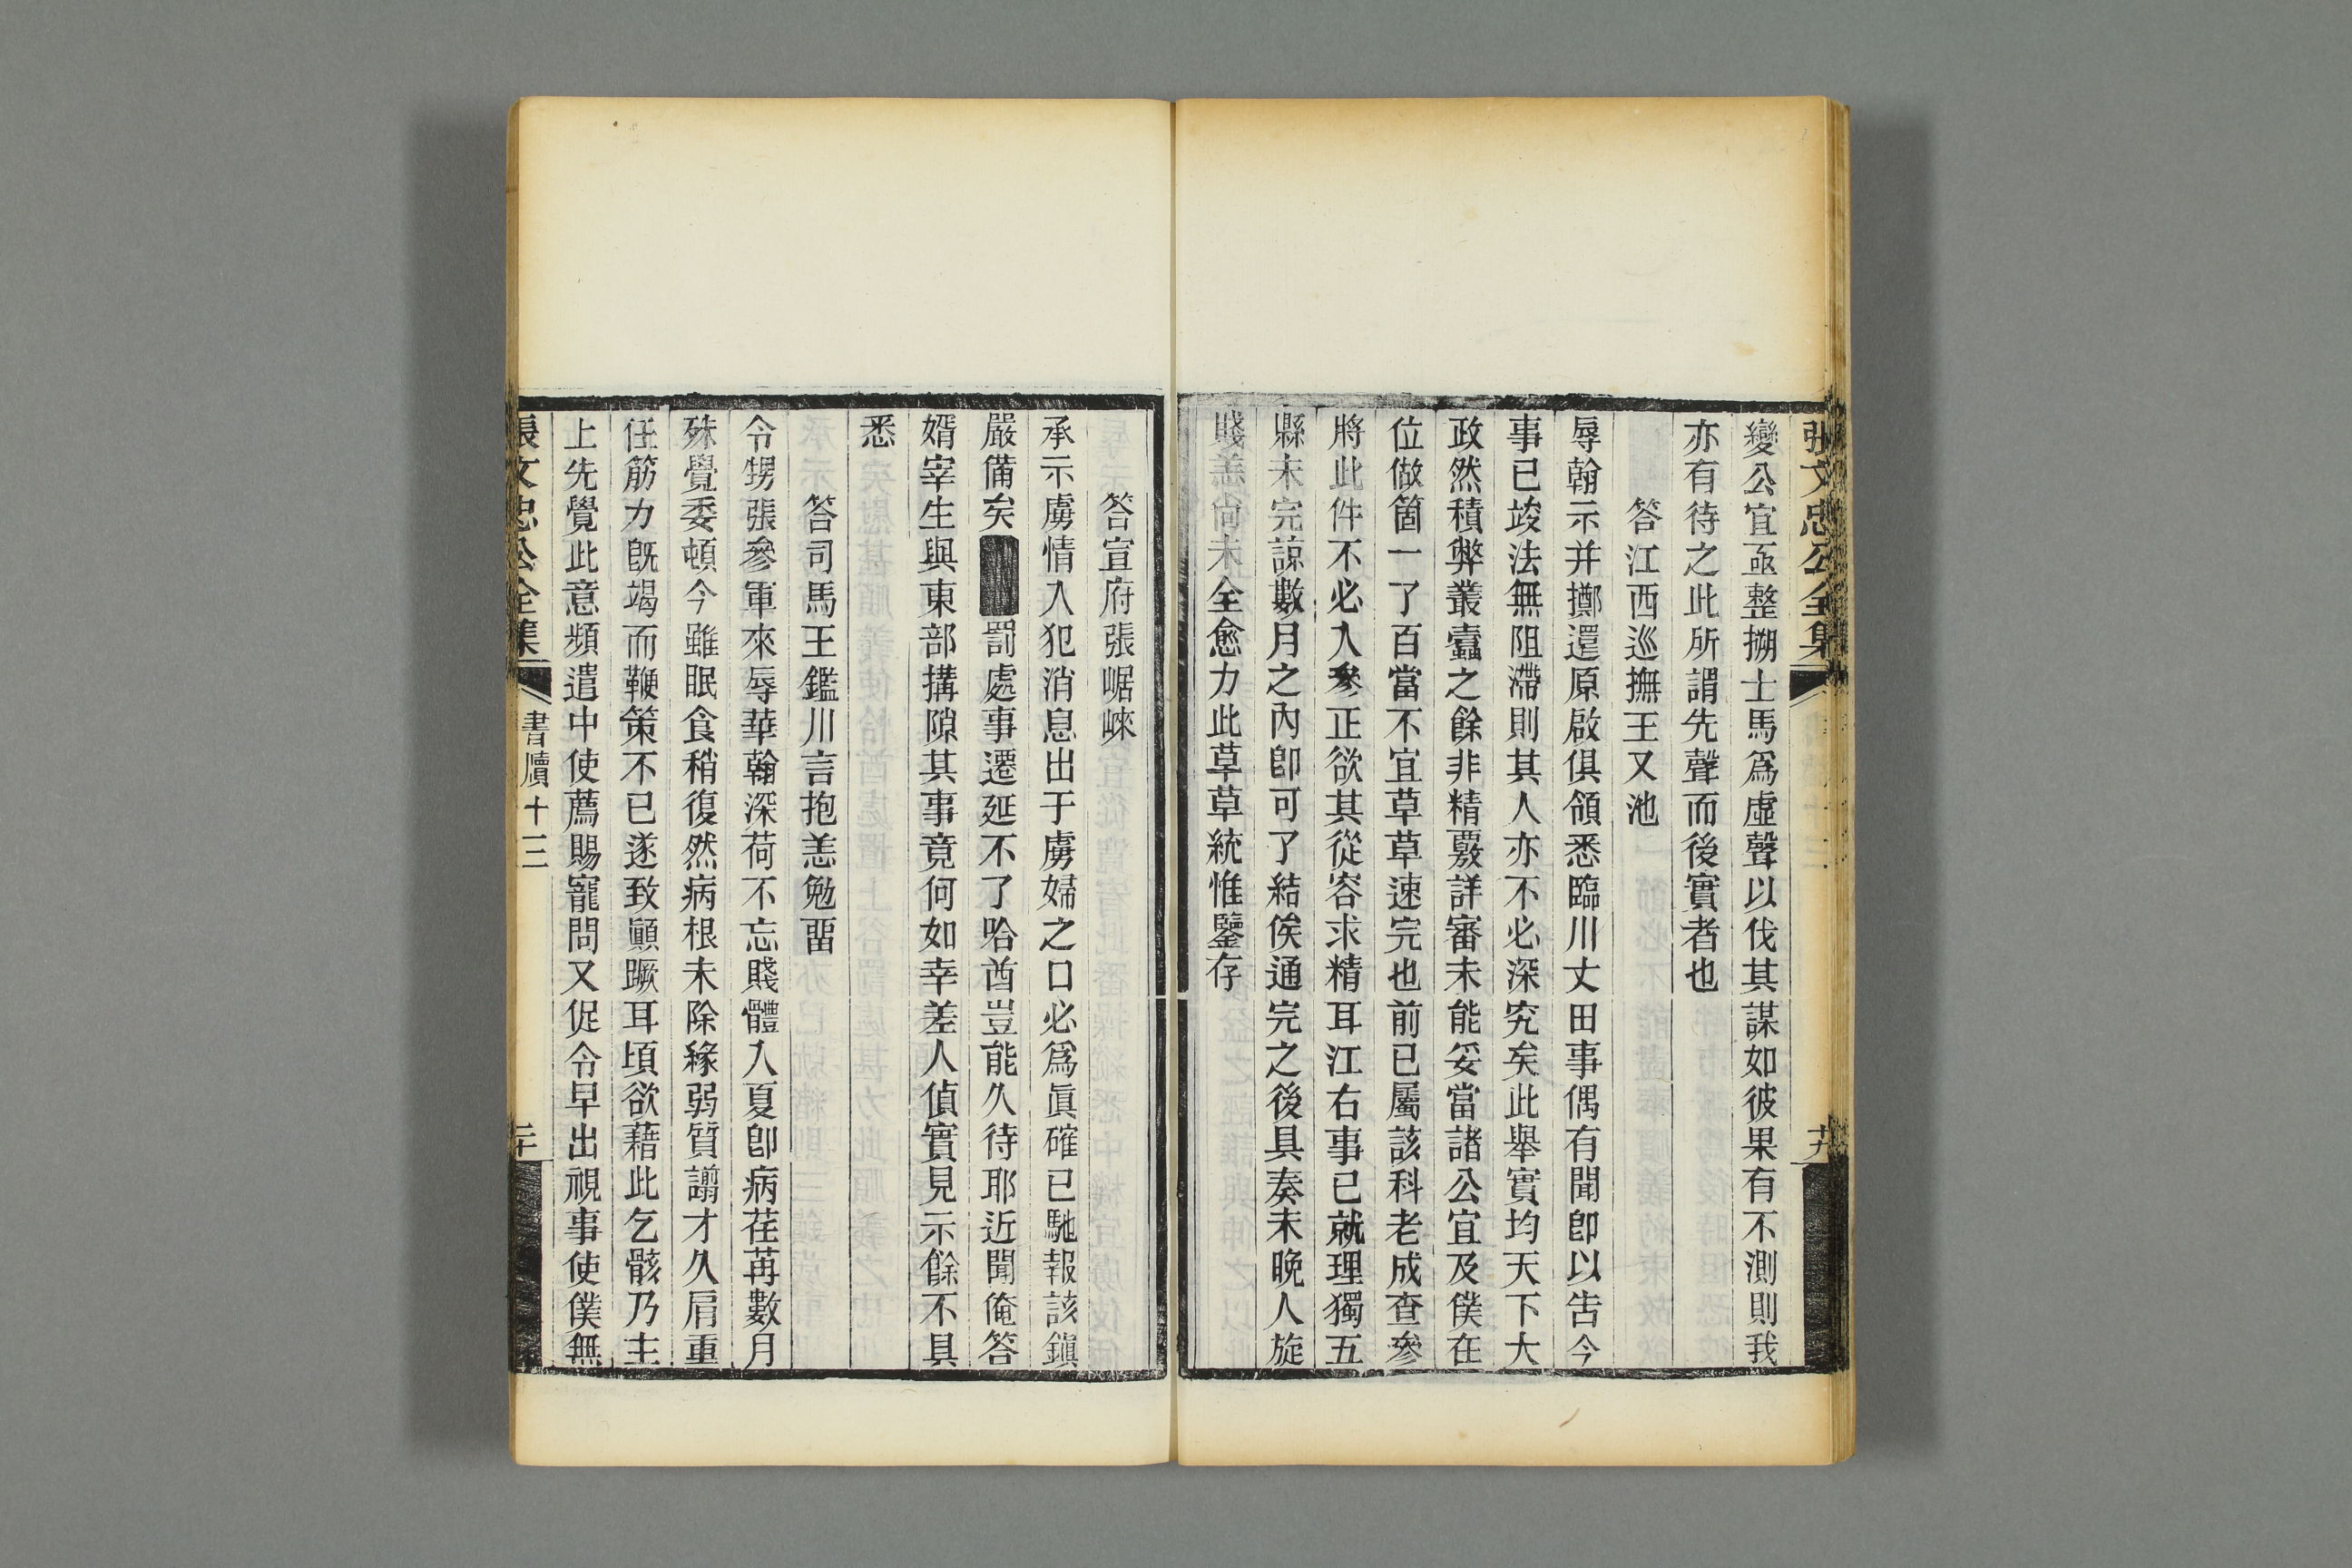 張文忠公全集
變公宜亟整搠士馬爲虛聲以伐其謀如彼果有不測則我
亦有待之此所謂先聲而後實者也
答江西巡撫王又池
辱翰示并擲還原啟俱領悉臨川丈田事偶有聞卽以吿今
事已竣法無阻滯則其人亦不必深究矣此舉實均天下大
政然積弊叢蠹之餘非精覈詳審未能妥當諸公宜及僕在
位做箇一了百當不宜草草速完也前已屬該科老成查參
將此件不必入參正欲其從容求精耳江右事已就理獨五
縣未完諒數月之內卽可了結俟通完之後具奏未晚人旋
賤恙尙未全愈力此草草統惟鑒存
答宣府張崌崍
承示虜情入犯消息出于虜婦之口必爲眞確已馳報該鎭
嚴備矣罰處事遷延不了哈酋豈能久待耶近聞俺答
婿宰生與東部搆隙其事竟何如幸差人偵實見示餘不具
悉
答司馬王鑑川言抱恙勉畱
令甥張參軍來辱華翰深荷不忘賤體入夏卽病荏苒數月
殊覺委頓今雖眠食稍復然病根未除緣弱質謭才久肩重
任筋力旣竭而鞭策不已遂致顚蹶耳頃欲藉此乞骸乃主
上先覺此意頻遣中使薦賜寵問又促令早出視事使僕無
張文忠公全集
書牘十三
二十